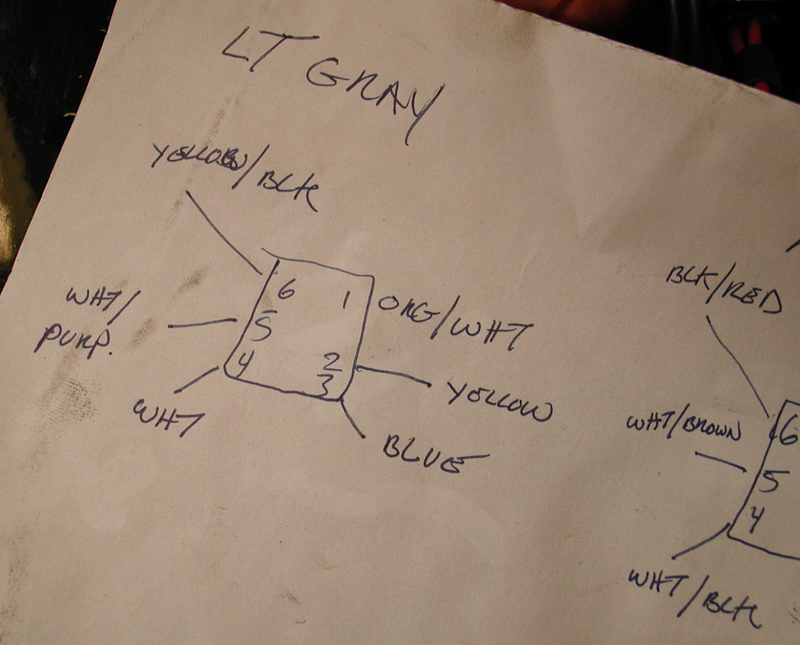 LT GRAY
YELLOW/BLK
6 1
ORG/WHT
WHT/
PURP.
5
2
YELLOW
4
3
WHT
BLUE
BLK/RED
6
WHT/BROWN
5
4
WHT/BLK